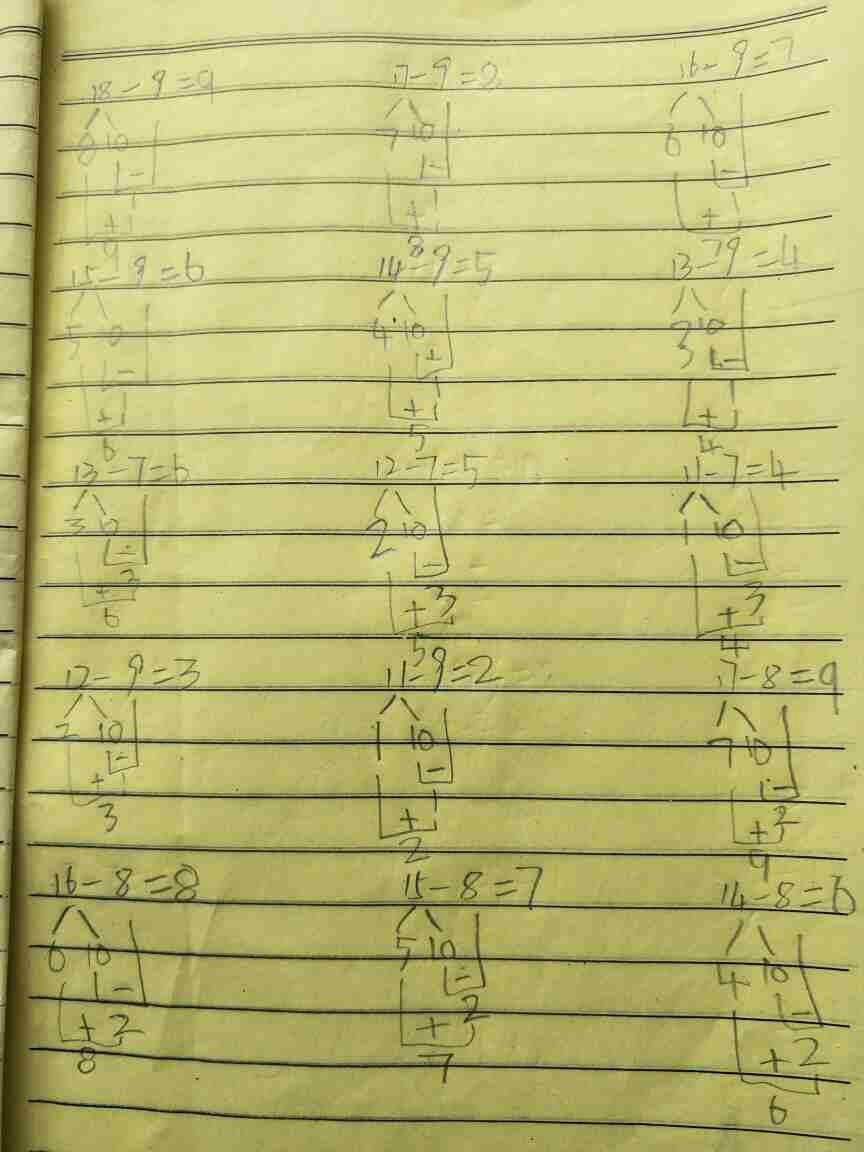 18-9=9 17-9=8 16-9=7
8 10 7 10 6 10
- - -
+ + +
9 8 7
15-9=6 14-9=5 13-9=4
5 10 4 10 3 10
- + -
+ + +
6 5 4
13-7=6 12-7=5 11-7=4
3 10 2 10 1 10
- - -
+ 3 + 3 + 3
6 5 4
12-9=3 11-9=2 17-8=9
2 10 1 10 7 10
- - -
+ + + 2
3 2 9
16-8=8 15-8=7 14-8=6
6 10 5 10 4 10
- - -
+ 2 + 2 + 2
8 7 6